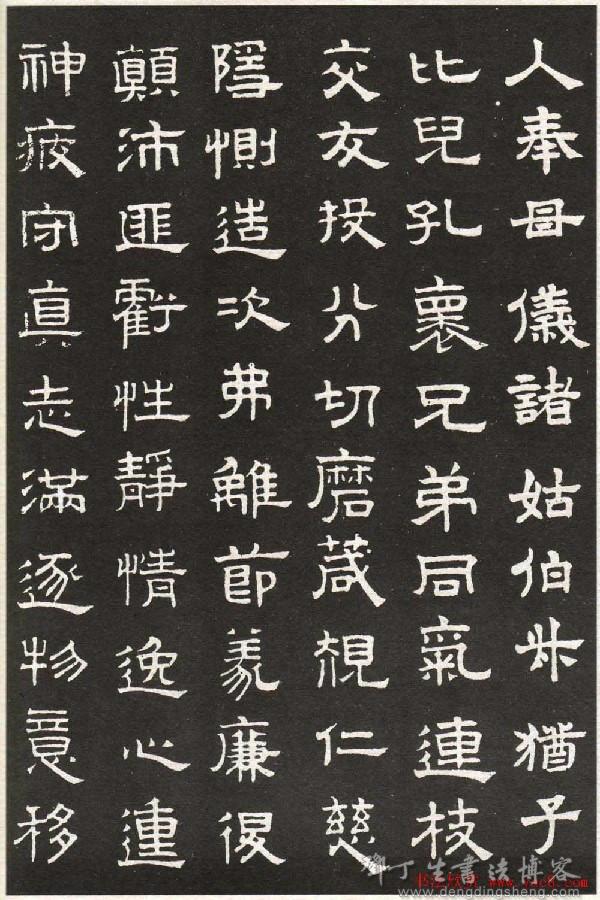 人奉母儀諸姑伯叔猶子
比兒孔褱兄弟同氣連枝
交友投分切磨葴規仁慈
隱惻造次弗離節義廉退
顛沛匪虧性靜情逸心動
神疲守真志滿逐物意移
鄧丁生書法博客
书法欣赏 www.yac8.com
www.dengdingsheng.com